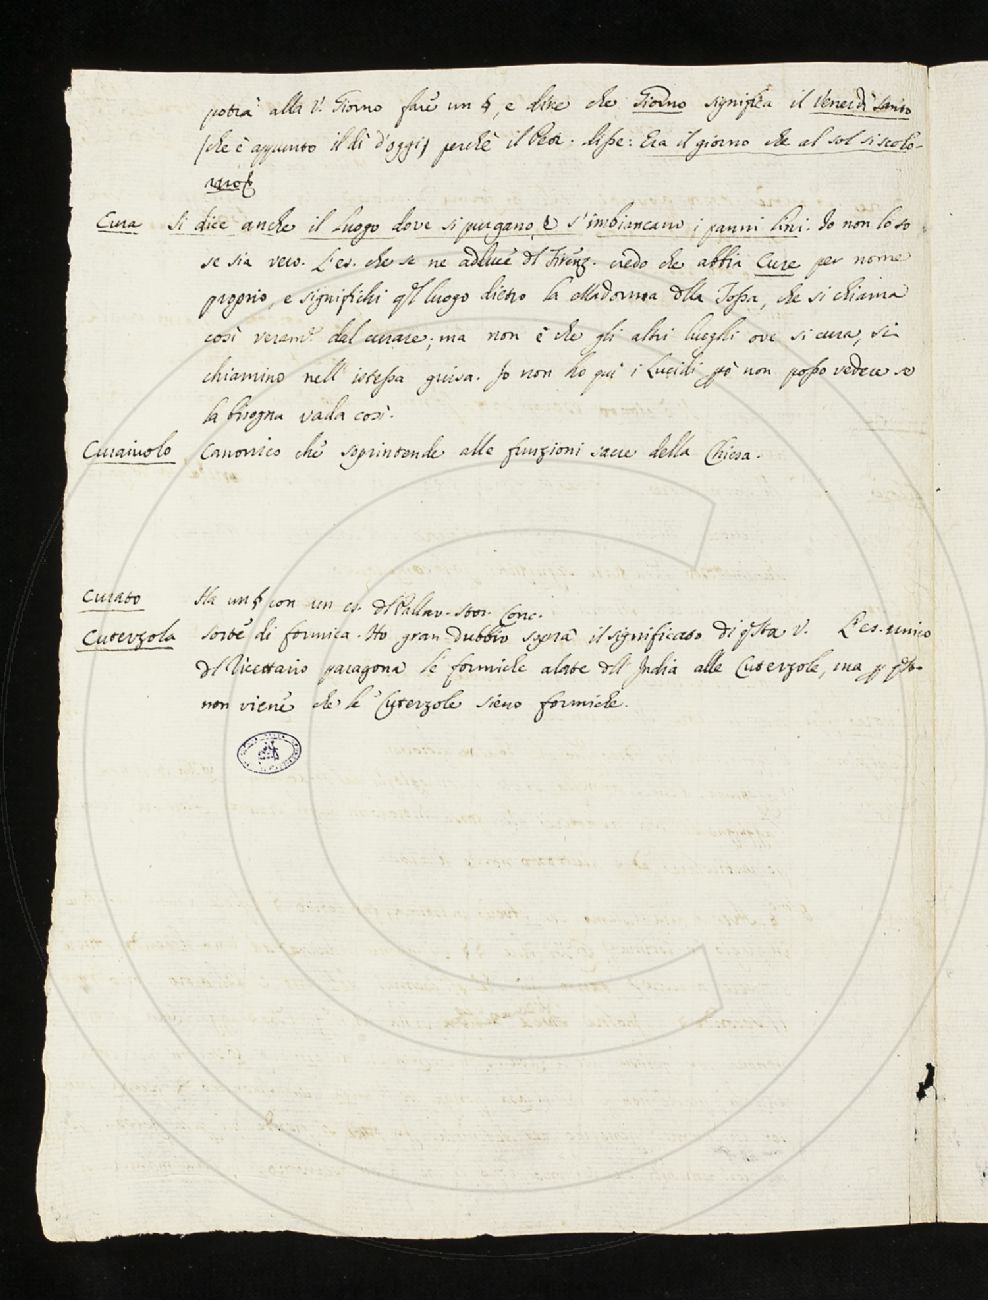 potrà alla V. Giorno fare un §, e dire che Giorno significa il Venerdì Santo
(che è appunto il dì d'oggi) perchè il Petr. disse: Era il giorno che al sol si scolo-
Cura Si dice anche il Luogo dove si purgano, e s'imbiancano i panni lini. Io non lo so
se sia vero. L'es. che se ne adduce del Firenz. credo che abbia Cure per nome
proprio, e significhi quel luogo dietro la Madonna della Tossa, che si chiama
così veram.e dal curare; ma non è che gli altri luoghi ove si cura, si
chiamino nell'istessa guisa. Io non ho qui i Lucidi però non posso vedere se
la bisogna vada così.
Curaiuolo Canonico che soprintende alle funzioni sacre della Chiesa.
Curato Ha un § con un es. del Pallav. Stor. Conc.
Cuterzola sorte di formica. Ho gran dubbio sopra il significato di questa V. L'es. unico
del Ricettario paragona le formiche alate dell'India alle Cuterzole, ma per questo
non viene che le Cuterzole sieno formiche.